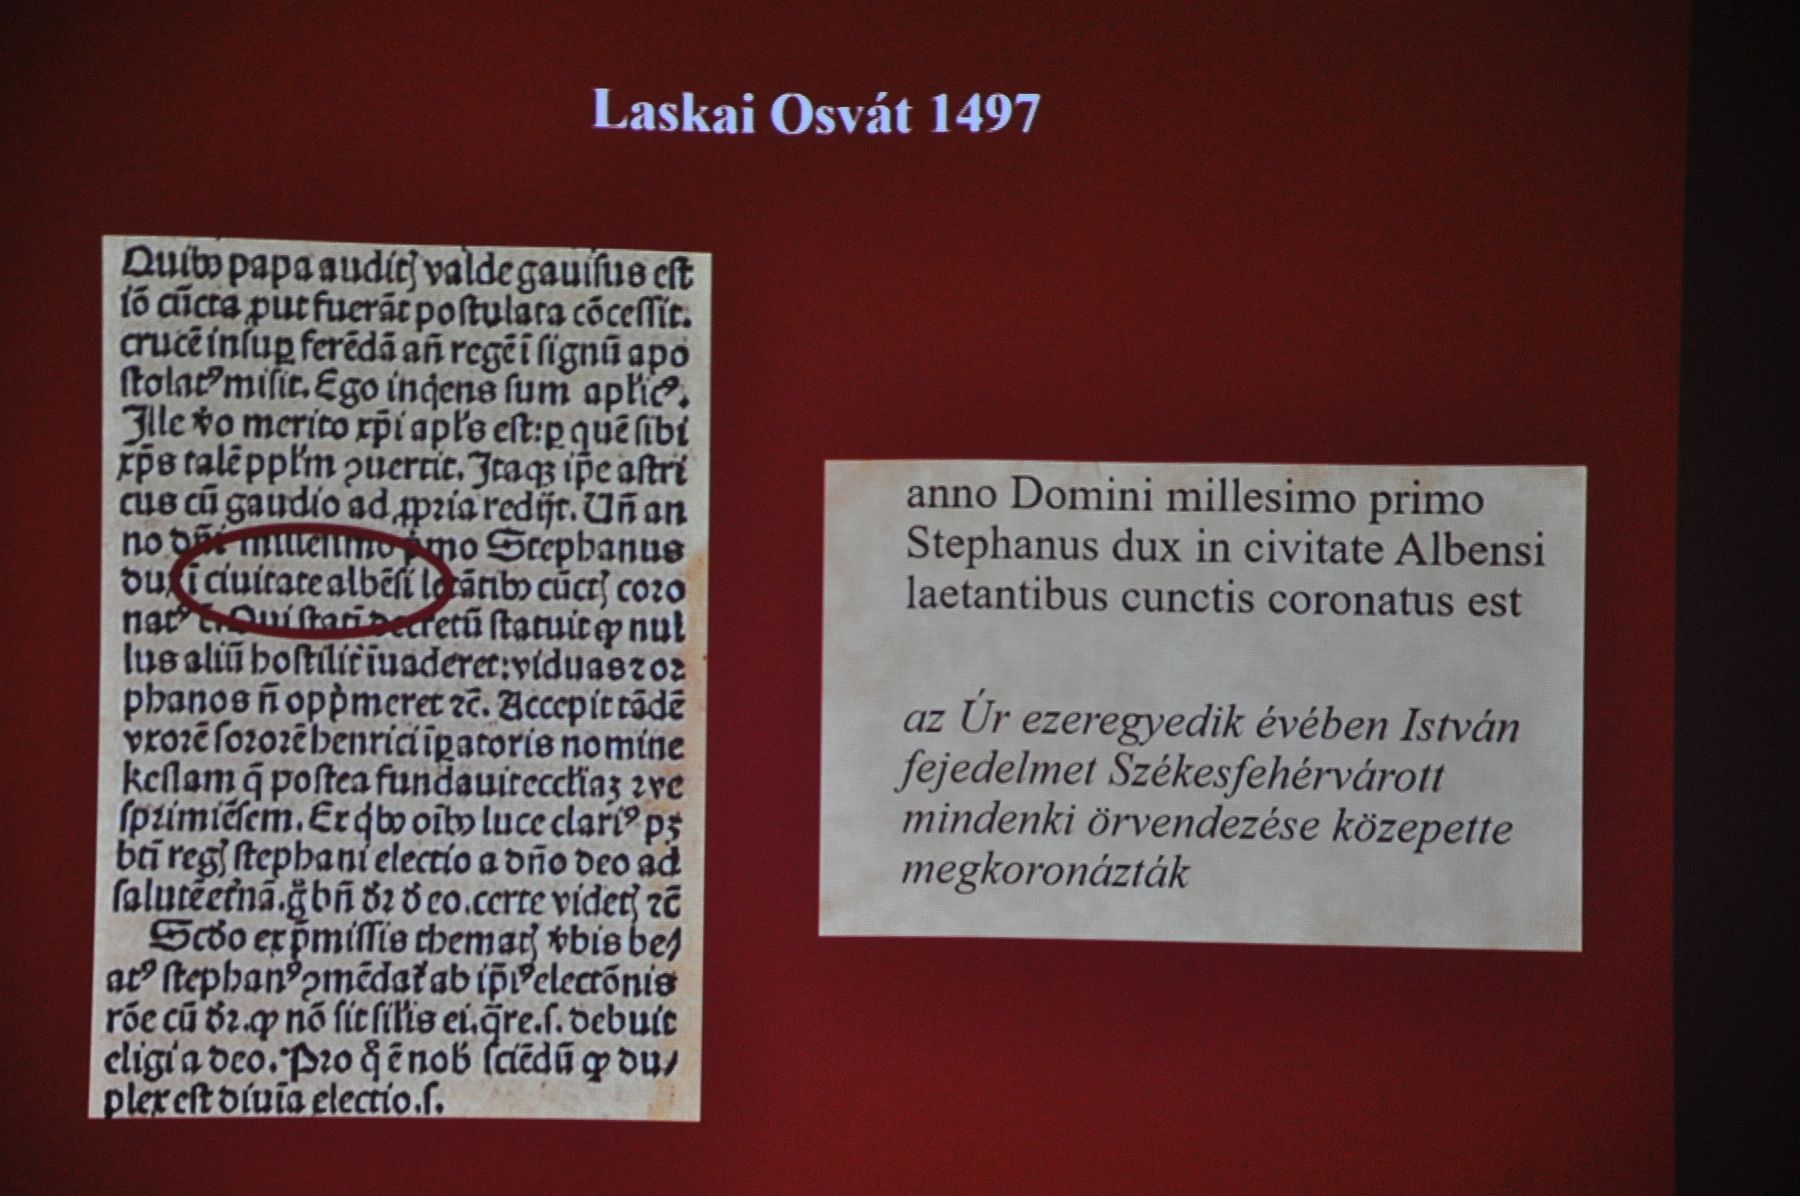 Laskai Osvát 1497
Quibꝰ papa auditꝭ valde gauisus est
iō cūcta ꝓut fuerāt postulata cōcessit.
crucē insuꝑ ferēdā añ regē ī signū apo
stolatꝰ misit. Ego inqͥens sum apłicꝰ.
Ille ꝟo merito xp̄i apłs est: ꝑ quē sibi
xp̄s talē ppłm ꝯuertit. Itaqꝫ ip̄e astri
cus cū gaudio ad ꝓpꝛia redijt. Uñ an
no dn̄i millesimo pͥmo Stephanus
dux ī ciuitate albēsi letātibꝰ cūctꝭ coꝛo
natꝰ ē. Qui statī decretū statuit ꝙ nul
lus aliū hostilit̓ īuaderet: viduas ⁊ oꝛ
phanos ñ oppͥmeret ⁊c̄. Accepit tādē
vxoꝛē soꝛoꝛē henrici īꝑatoris nomine
keslam q̄ postea fundauit eccłiaꝫ ⁊ ve
spꝛimiēsem. Ex qͥbꝰ oībꝰ luce clariꝰ pꝫ
btī regꝭ stephani electio a dño deo ad
salutē et̓nā. g̊ bñ dꝛ d̓ eo. certe videtꝭ ⁊c̄
Scd̓o ex p̄missis thematꝭ ꝟbis be⸗
atꝰ stephanꝰ ꝯmēdat᷑ ab ip̄iꝰ electōnis
rōe cū dꝛ. ꝙ nō sit siłis ei. q̄re .s. debuit
eligi a deo. Pꝛo qͦ ē nob̓ sciēdū ꝙ du⸗
plex est diuīa electio .s.
anno Domini millesimo primo
Stephanus dux in civitate Albensi
laetantibus cunctis coronatus est
az Úr ezeregyedik évében István
fejedelmet Székesfehérvárott
mindenki örvendezése közepette
megkoronázták